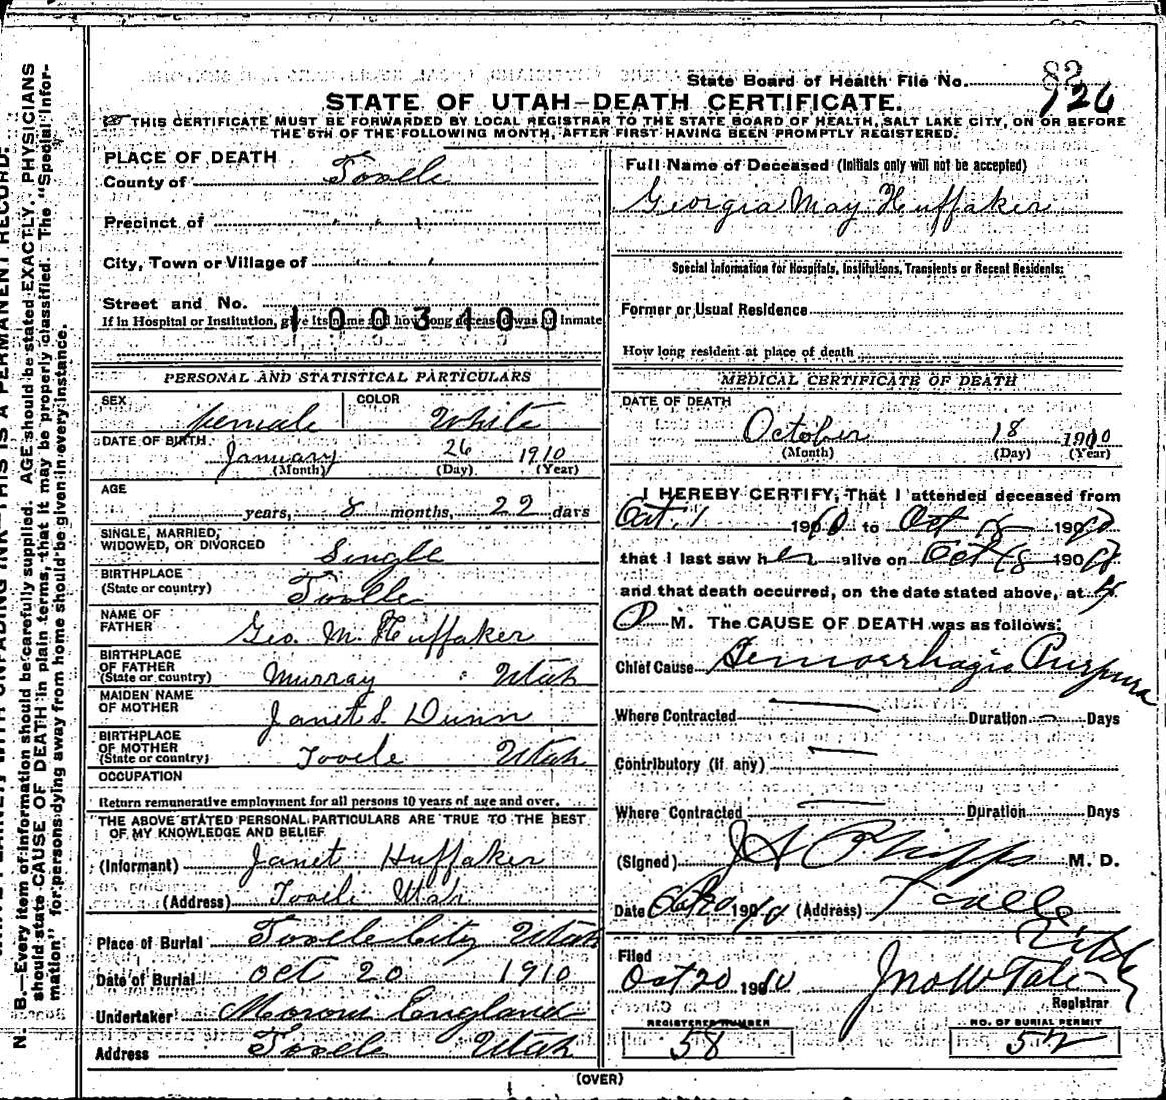 State Board of Health File No. 82
126
STATE OF UTAH—DEATH CERTIFICATE.
THIS CERTIFICATE MUST BE FORWARDED BY LOCAL REGISTRAR TO THE STATE BOARD OF HEALTH, SALT LAKE CITY, ON OR BEFORE
THE 5TH OF THE FOLLOWING MONTH, AFTER FIRST HAVING BEEN PROMPTLY REGISTERED.
PLACE OF DEATH
County of Tooele
Precinct of " " "
City, Town or Village of " " "
Street and No.
If in Hospital or Institution, give its name and how long deceased was an inmate
1003100
PERSONAL AND STATISTICAL PARTICULARS
SEX female COLOR White
DATE OF BIRTH January 26 1910
(Month) (Day) (Year)
AGE
years, 8 months, 22 days
SINGLE, MARRIED,
WIDOWED, OR DIVORCED Single
BIRTHPLACE
(State or country) Tooele
NAME OF
FATHER Geo. M. Huffaker
BIRTHPLACE
OF FATHER
(State or country) Murray Utah
MAIDEN NAME
OF MOTHER Janet S. Dunn
BIRTHPLACE
OF MOTHER
(State or country) Tooele Utah
OCCUPATION
Return remunerative employment for all persons 10 years of age and over.
THE ABOVE STATED PERSONAL PARTICULARS ARE TRUE TO THE BEST
OF MY KNOWLEDGE AND BELIEF
(Informant) Janet Huffaker
(Address) Tooele Utah
Place of Burial Tooele City Utah
Date of Burial Oct 20 1910
Undertaker Moroni England
Address Tooele Utah
Full Name of Deceased (Initials only will not be accepted)
Georgia May Huffaker
Special Information for Hospitals, Institutions, Transients or Recent Residents:
Former or Usual Residence
How long resident at place of death
MEDICAL CERTIFICATE OF DEATH
DATE OF DEATH
October 18 1910
(Month) (Day) (Year)
I HEREBY CERTIFY, That I attended deceased from
Oct. 1 1910 to Oct 18 1910
that I last saw her alive on Oct 18 1910
and that death occurred, on the date stated above, at
P M. The CAUSE OF DEATH was as follows:
Chief Cause Hemorrhagic Purpura
Where Contracted — Duration — Days
Contributory (if any) —
Where Contracted — Duration Days
(Signed) J A Phipps M. D.
Date Oct 20 1910 (Address) Tooele
Utah
Filed
Oct 20 1910 Jno W Tate
Registrar
REGISTERED NUMBER
58
NO. OF BURIAL PERMIT
52
(OVER)
N. B.—Every item of information should be carefully supplied. AGE should be stated EXACTLY. PHYSICIANS
should state CAUSE OF DEATH in plain terms, that it may be properly classified. The "Special Infor-
mation" for persons dying away from home should be given in every instance.